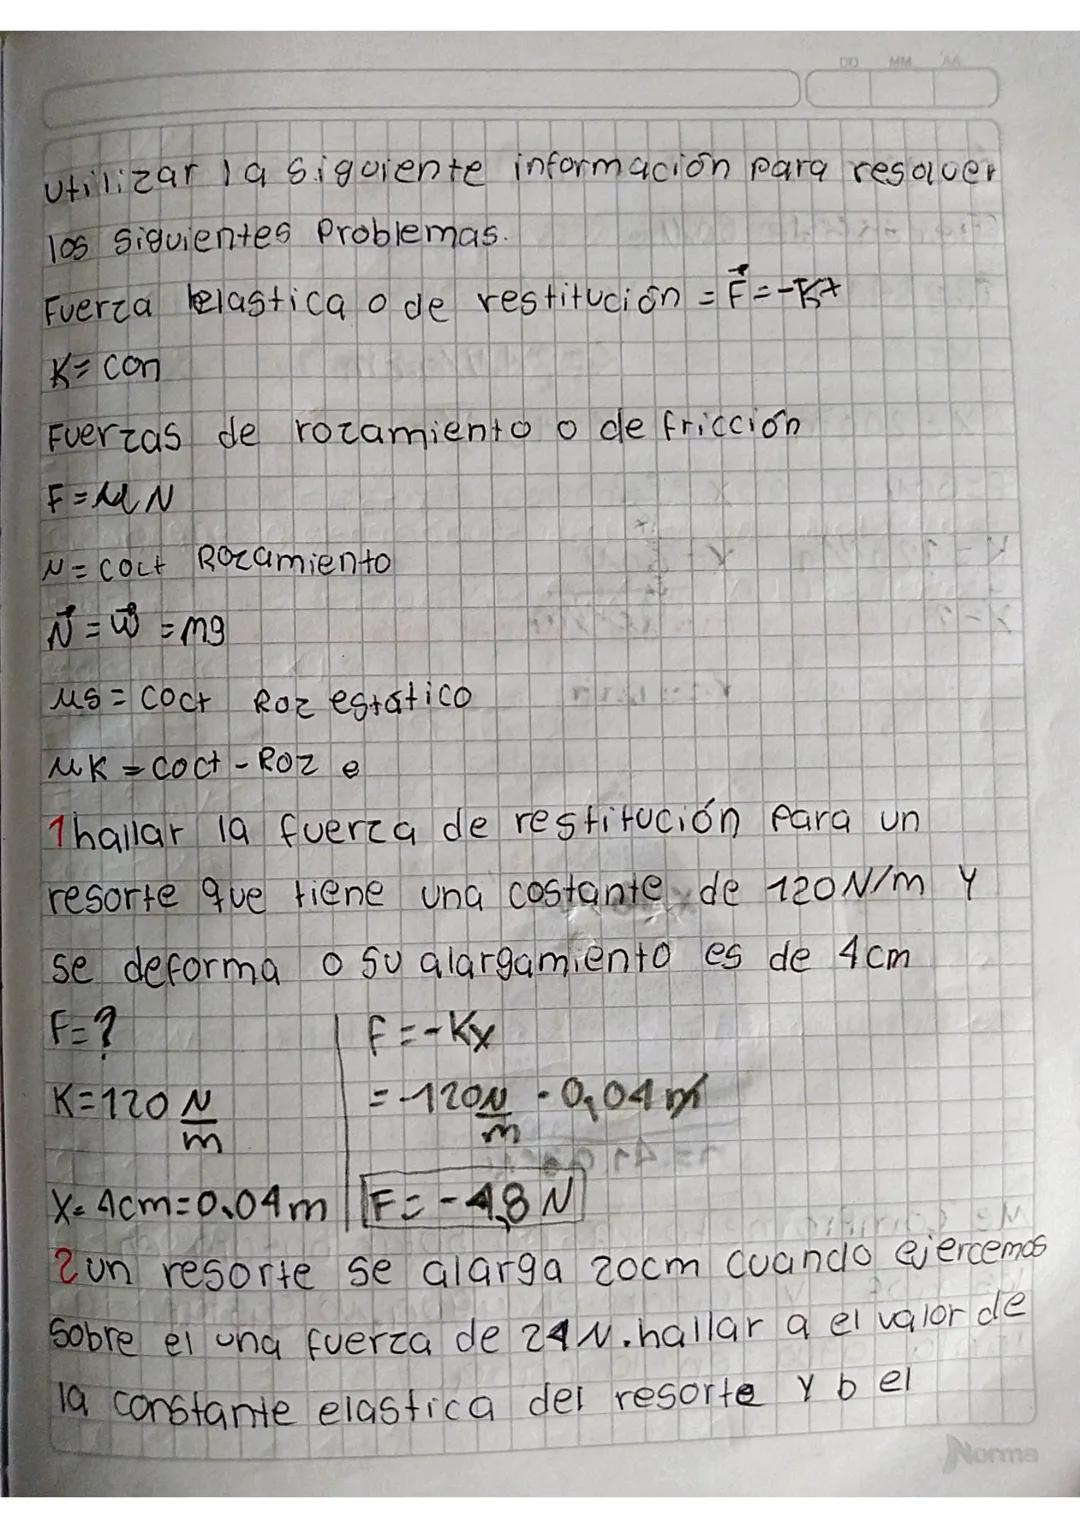 DD MM AA
utilizar la siguiente información para resolver
los siguientes problemas.
Fuerza elastica o de restitución = F = -Kx
K = con
Fuerzas de rozamiento o de fricción
F = μ N
N = coct Rozamiento
N = w = mg
μs = coct Roz estático
μK = coct - Roz e
1 hallar la fuerza de restitución para un
resorte que tiene una costante de 120 N/m y
se deforma o su alargamiento es de 4 cm
F = ? F = -Kx
K = 120 N/m = -120 N/m · 0,04 m
X = 4cm = 0,04 m F = -4,8 N
2 un resorte se alarga 20cm cuando ejercemos
sobre el una fuerza de 24 N. hallar a el valor de
la constante elastica del resorte y b el
Norma